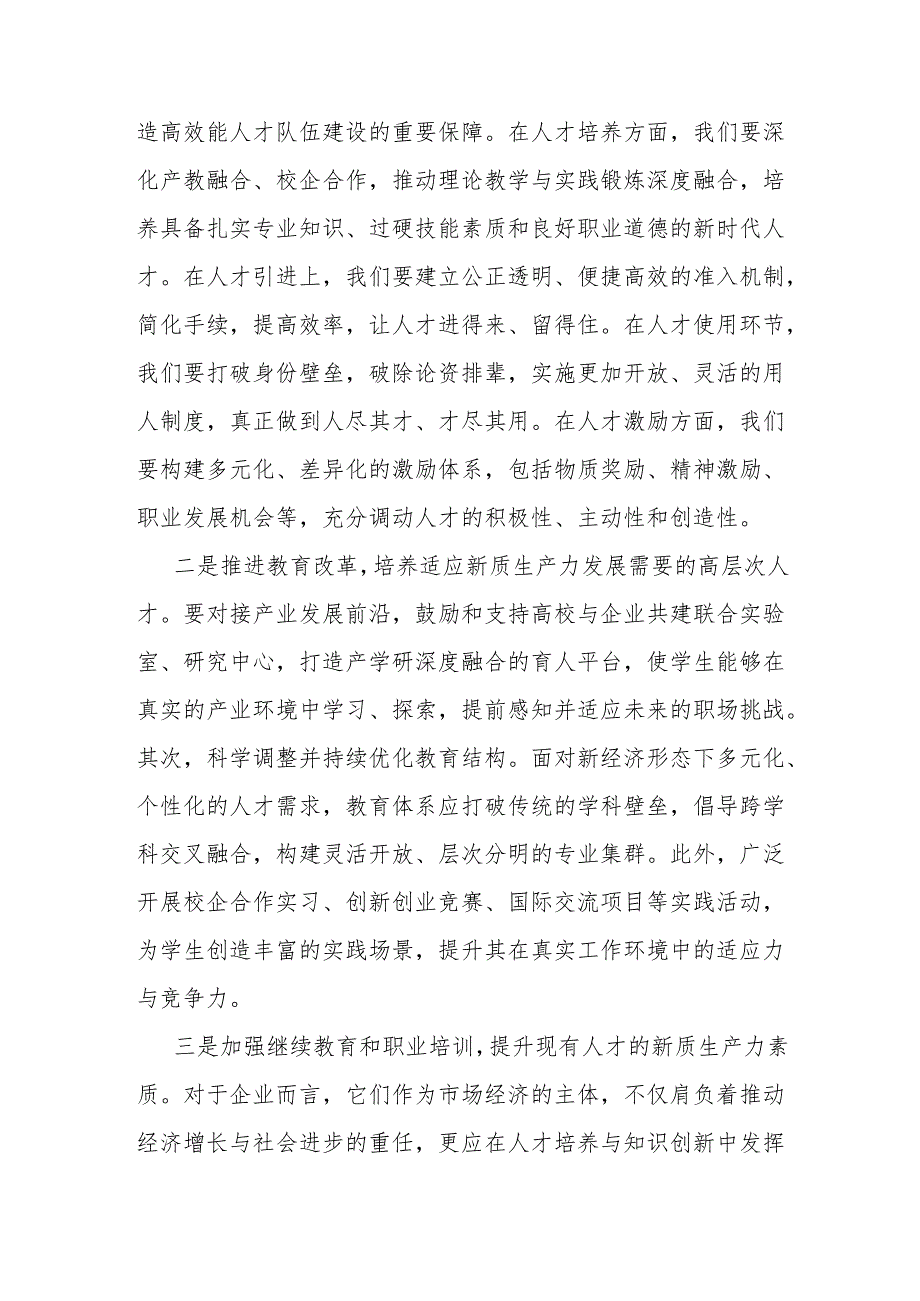 造高效能人才队伍建设的重要保障。在人才培养方面，我们要深
化产教融合、校企合作，推动理论教学与实践锻炼深度融合，培
养具备扎实专业知识、过硬技能素质和良好职业道德的新时代人
才。在人才引进上，我们要建立公正透明、便捷高效的准入机制，
简化手续，提高效率，让人才进得来、留得住。在人才使用环节，
我们要打破身份壁垒，破除论资排辈，实施更加开放、灵活的用
人制度，真正做到人尽其才、才尽其用。在人才激励方面，我们
要构建多元化、差异化的激励体系，包括物质奖励、精神激励、
职业发展机会等，充分调动人才的积极性、主动性和创造性。
二是推进教育改革，培养适应新质生产力发展需要的高层次人
才。要对接产业发展前沿，鼓励和支持高校与企业共建联合实验
室、研究中心，打造产学研深度融合的育人平台，使学生能够在
真实的产业环境中学习、探索，提前感知并适应未来的职场挑战。
其次，科学调整并持续优化教育结构。面对新经济形态下多元化、
个性化的人才需求，教育体系应打破传统的学科壁垒，倡导跨学
科交叉融合，构建灵活开放、层次分明的专业集群。此外，广泛
开展校企合作实习、创新创业竞赛、国际交流项目等实践活动，
为学生创造丰富的实践场景，提升其在真实工作环境中的适应力
与竞争力。
三是加强继续教育和职业培训，提升现有人才的新质生产力素
质。对于企业而言，它们作为市场经济的主体，不仅肩负着推动
经济增长与社会进步的重任，更应在人才培养与知识创新中发挥